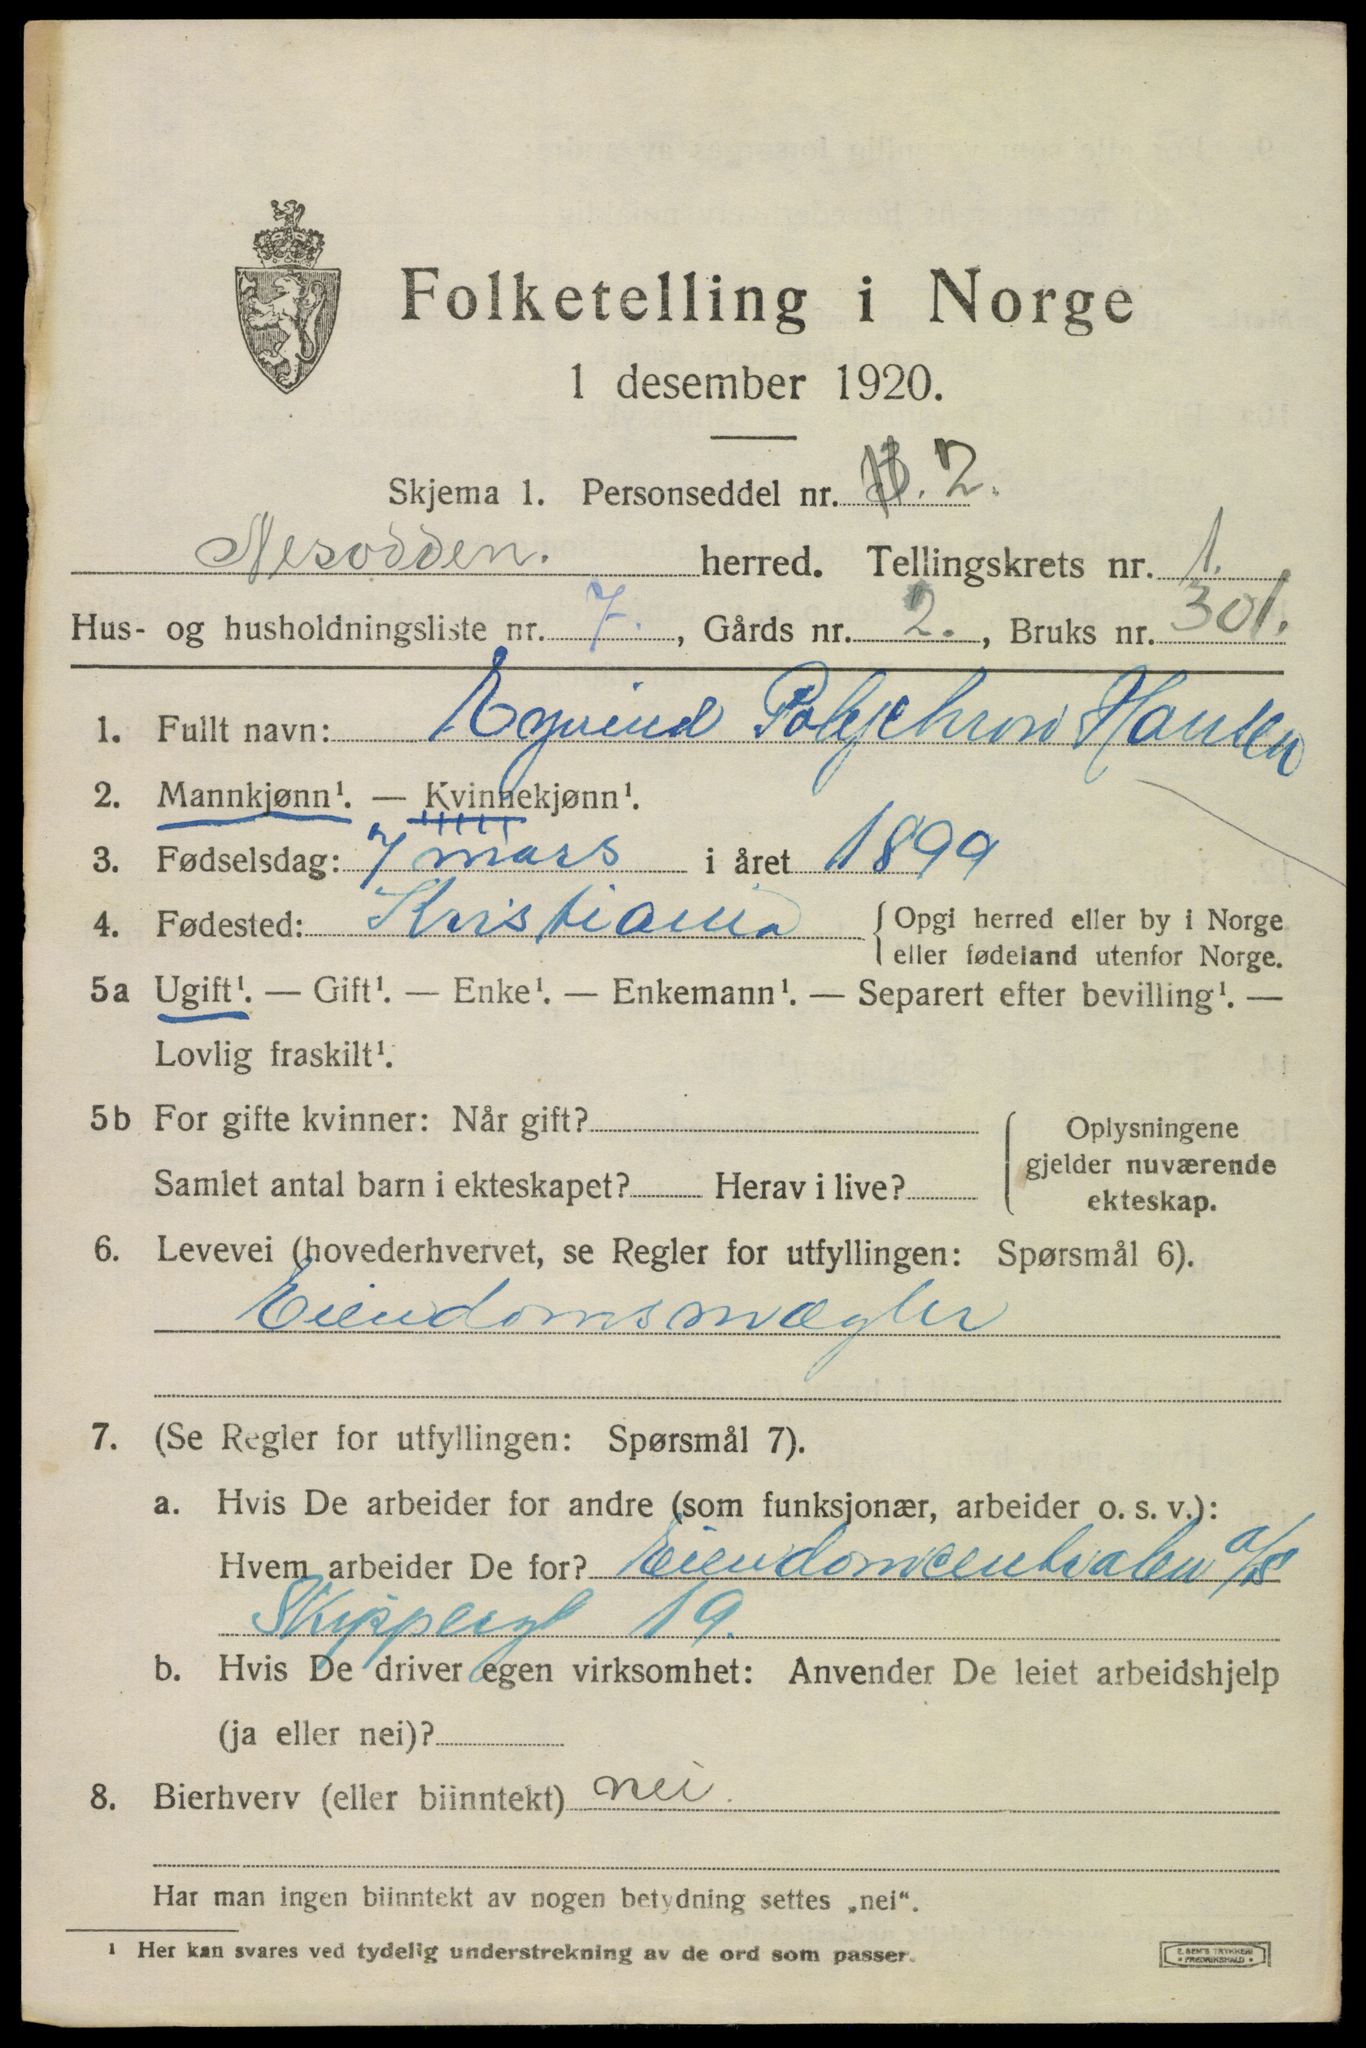 Folketelling i Norge
1 desember 1920.
Skjema 1. Personseddel nr. 2.
Nesodden. herred. Tellingskrets nr. 1.
Hus- og husholdningsliste nr. 7., Gårds nr. 2., Bruks nr. 301.
1. Fullt navn: Eyvind Polychron Hansen
2. Mannkjønn¹. — Kvinnekjønn¹.
3. Fødselsdag: 7 mars i året 1899
4. Fødested: Kristiania { Opgi herred eller by i Norge
eller fødeland utenfor Norge.
5a Ugift¹. — Gift¹. — Enke¹. — Enkemann¹. — Separert efter bevilling¹. —
Lovlig fraskilt¹.
5b For gifte kvinner: Når gift?
Samlet antal barn i ekteskapet? Herav i live?
Oplysningene
gjelder nuværende
ekteskap.
6. Levevei (hovederhvervet, se Regler for utfyllingen: Spørsmål 6).
Eiendomsmægler
7. (Se Regler for utfyllingen: Spørsmål 7).
a. Hvis De arbeider for andre (som funksjonær, arbeider o. s. v.):
Hvem arbeider De for? Eiendomcentralen a/s
Skippergt 19.
b. Hvis De driver egen virksomhet: Anvender De leiet arbeidshjelp
(ja eller nei)?
8. Bierhverv (eller biinntekt) nei.
Har man ingen biinntekt av nogen betydning settes „nei“.
¹ Her kan svares ved tydelig understrekning av de ord som passer.
E. SEM'S TRYKKERI
FREDRIKSHALD